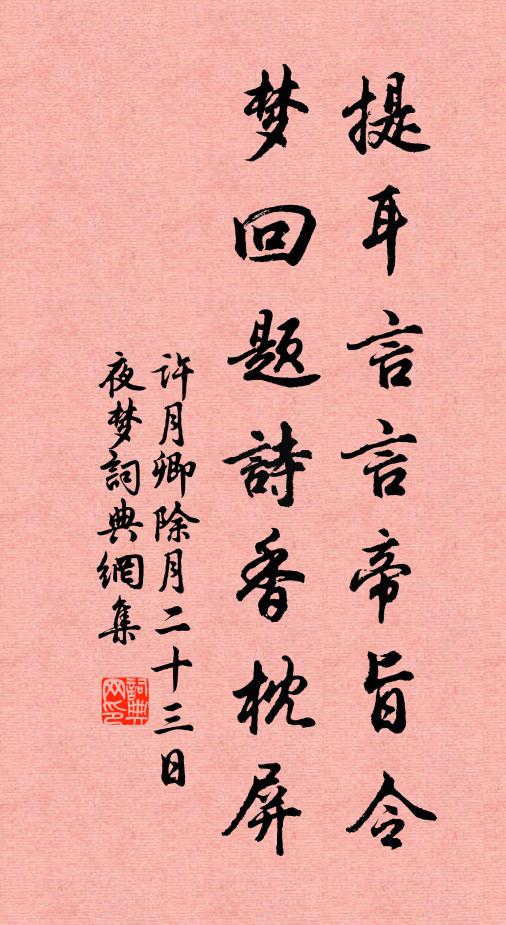 提耳言言帝旨令
梦回题詩香枕屏
许月卿除月二十三日
夜梦詞典網集
詞典网印